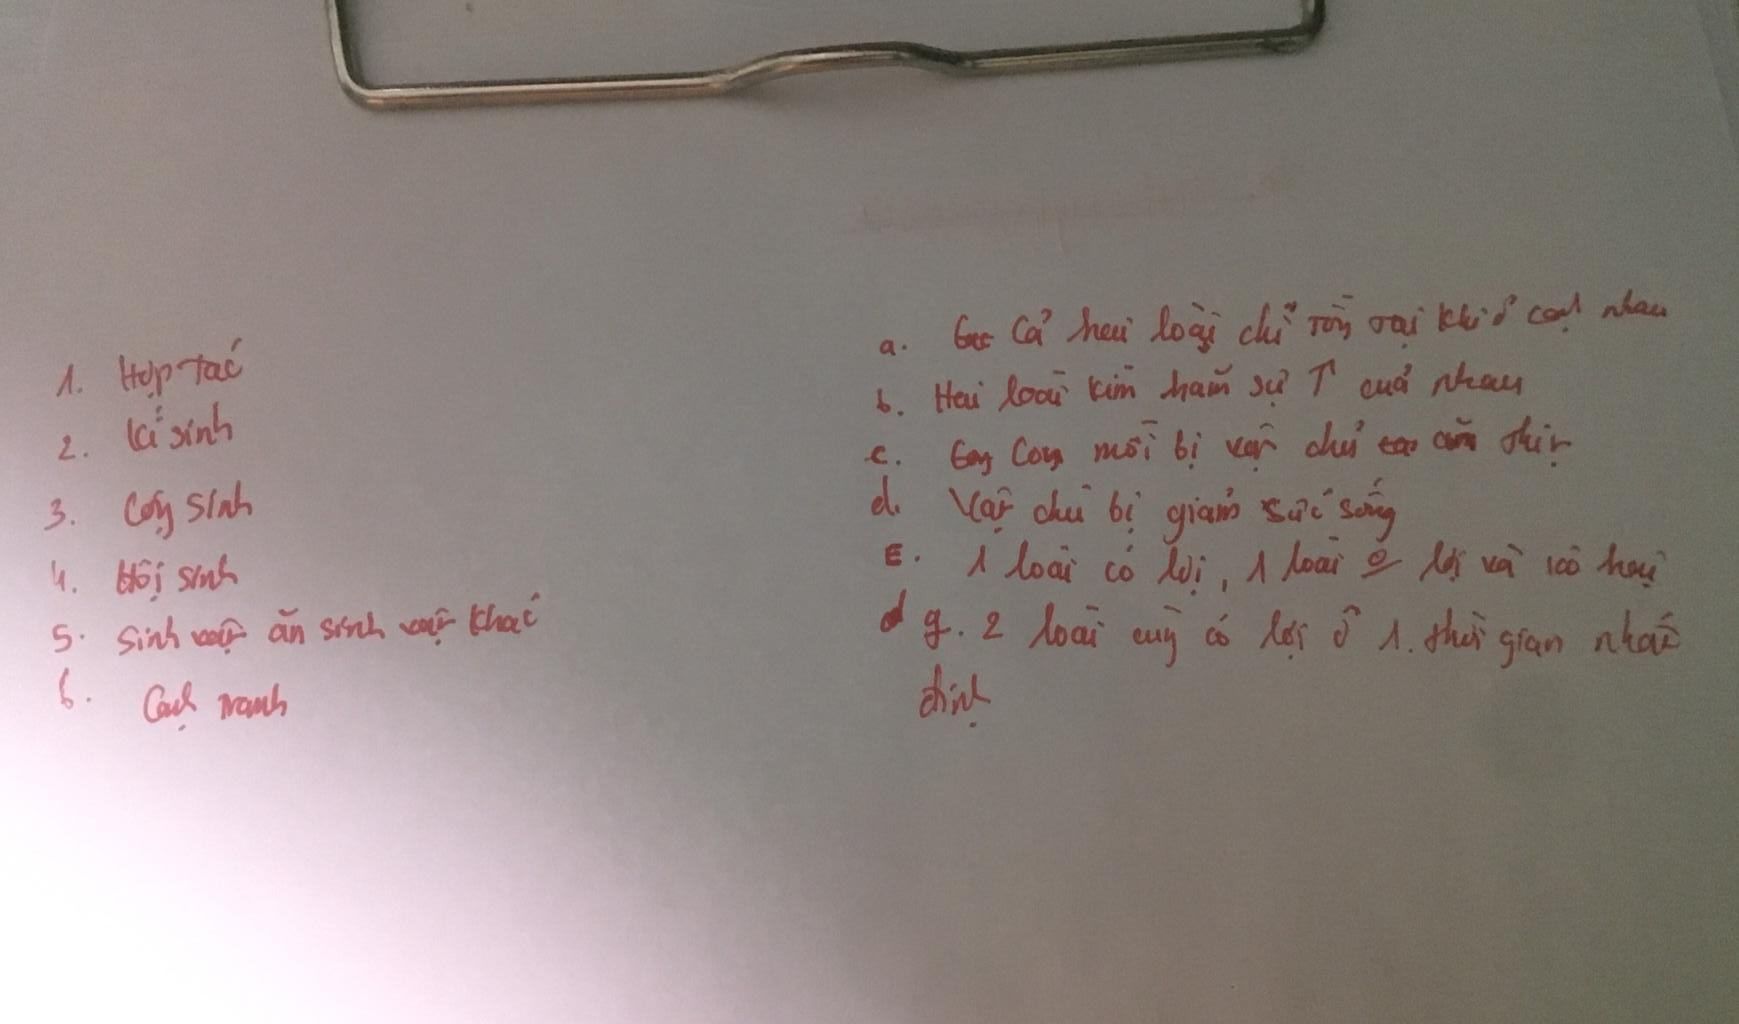 1. Hợp tác
2. Kí sinh
3. Cộng sinh
4. Hội sinh
5. Sinh vật ăn sinh vật khác
6. Cạnh tranh
a. Cả hai loài chỉ tồn tại khi ở cạnh nhau
b. Hai loài kìm hãm sự ↑ của nhau
c. Con mồi bị vật chủ ăn thịt
d. Vật chủ bị giảm sức sống
E. 1 loài có lợi, 1 loài lợi và hại
g. 2 loài cùng có lợi ở 1. thời gian nhất
định